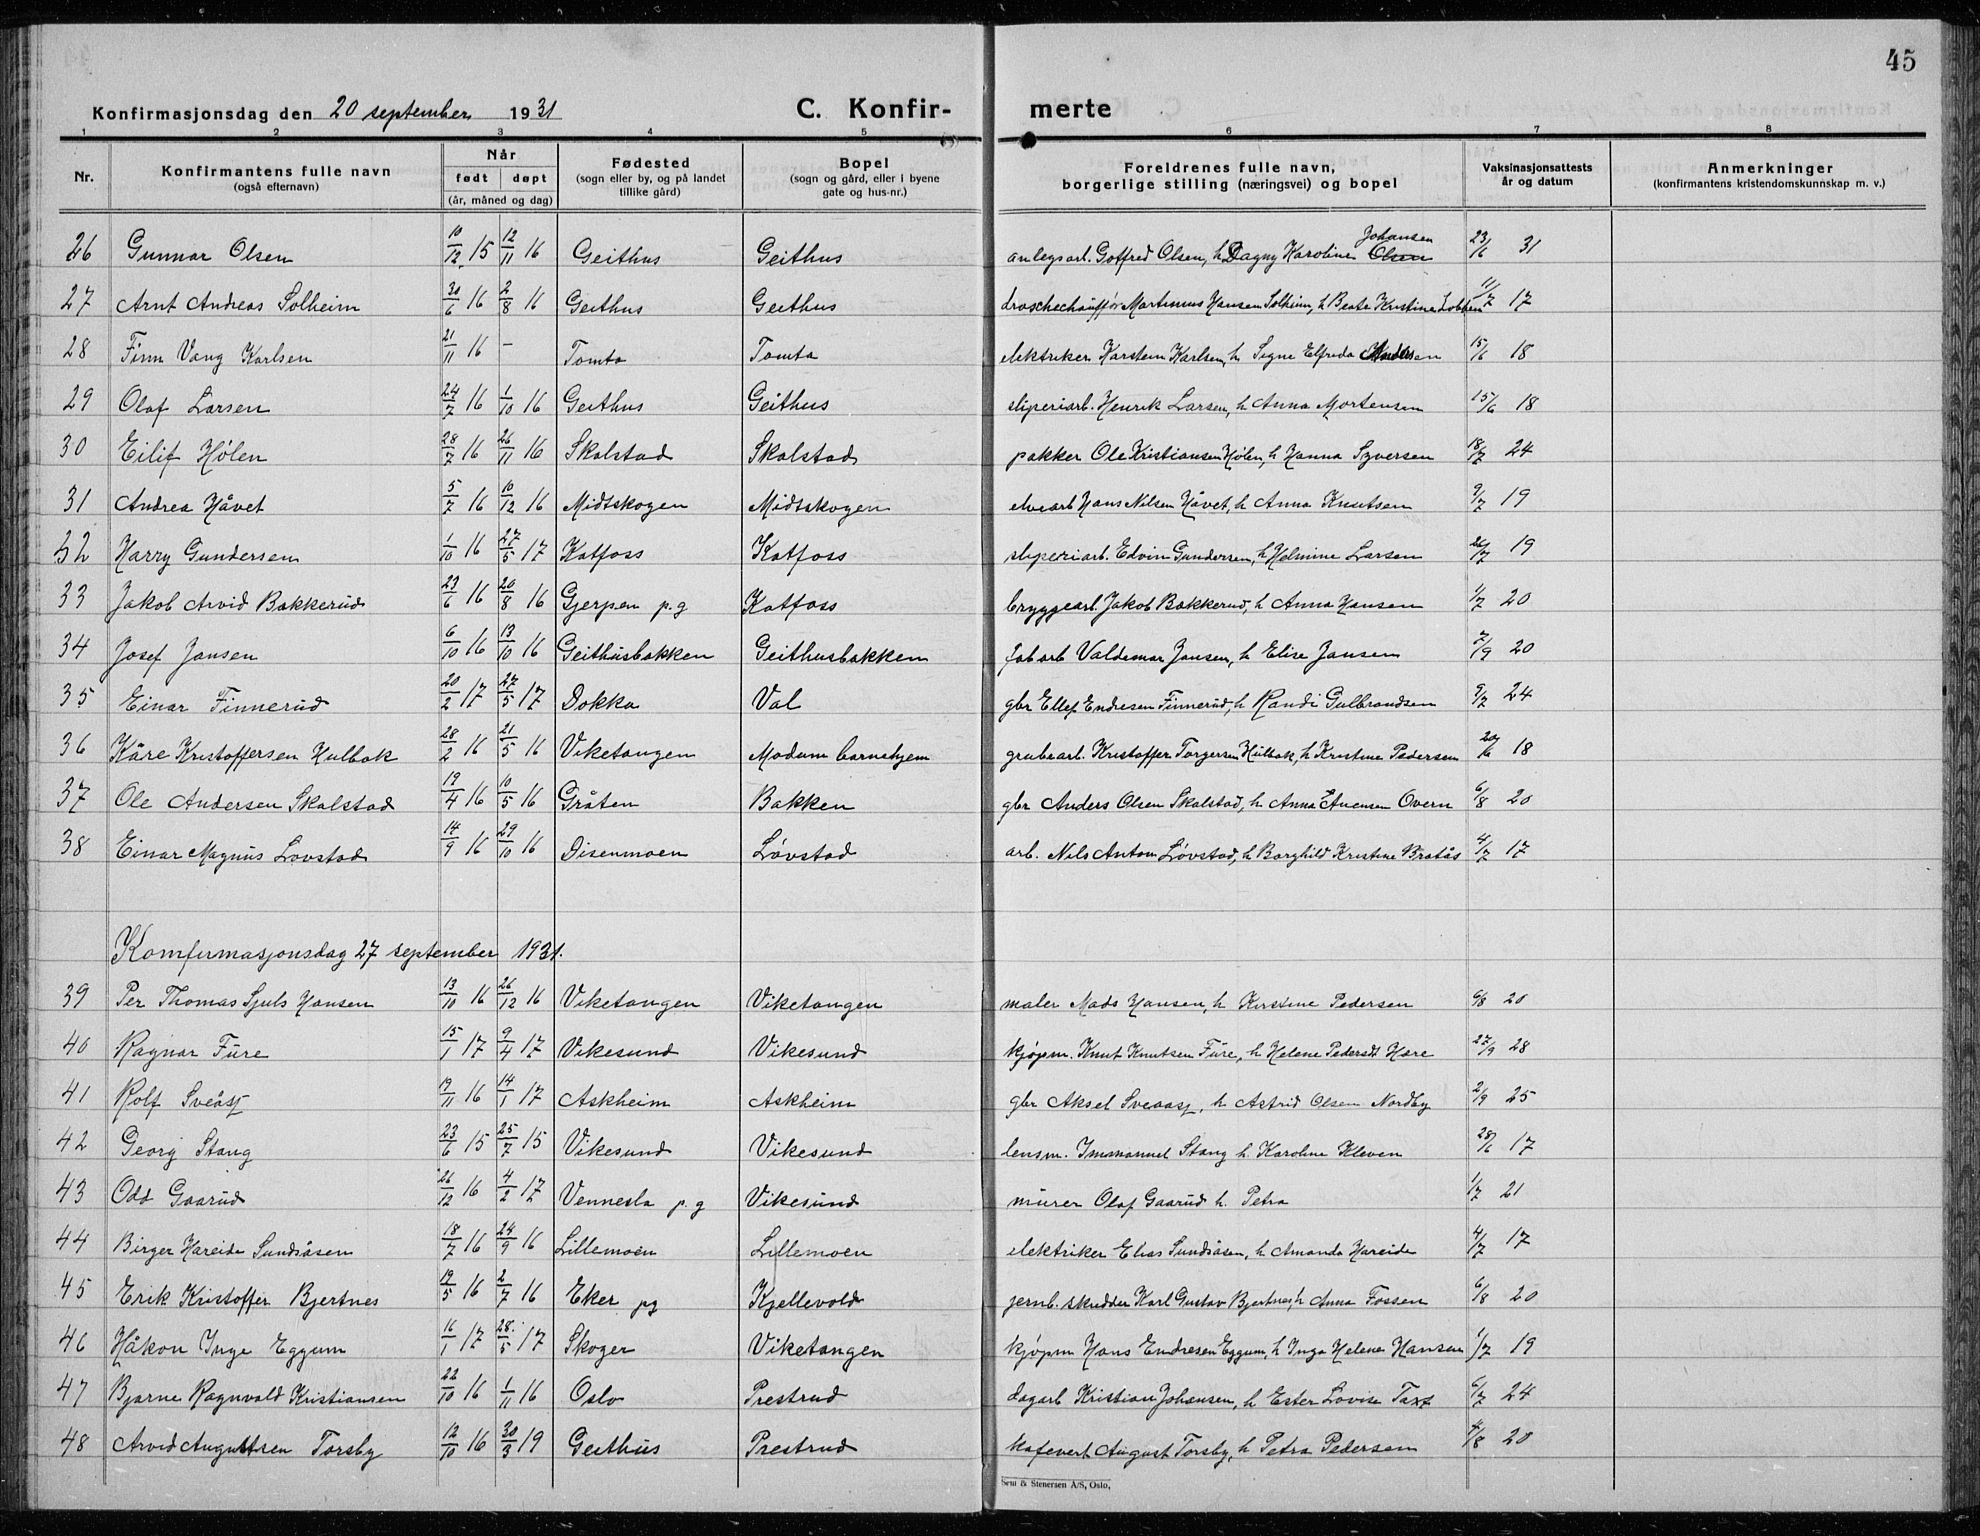 45
Konfirmasjonsdag den 20 september 1931 C. Konfir- merte
1 2 3 4 5 6 7 8
Nr. Konfirmantens fulle navn (også efternavn) Når født døpt (år, måned og dag) Fødested (sogn eller by, og på landet tillike gård) Bopel (sogn og gård, eller i byene gate og hus-nr.) Foreldrenes fulle navn, borgerlige stilling (næringsvei) og bopel Vaksinasjonsattests år og datum Anmerkninger (konfirmantens kristendomskunnskap m. v.)
26 Gunnar Olsen 10/12 15 12/11 16 Geithus Geithus anlegsarb. Gotfred Olsen, h Dagny Karoline Olsen Johansen 23/6 31
27 Arnt Andreas Solheim 30/6 16 2/8 16 Geithus Geithus droschechauffør Martinius Hansen Solheim, h Beate Kristine Lobben 11/7 17
28 Finn Vang Karlsen 21/11 16 - Tomta Tomta elektriker Karsten Karlsen, h Signe Elfreda 15/6 18
29 Olaf Larsen 24/7 16 1/10 16 Geithus Geithus sliperiarb. Henrik Larsen, h Anna Mortensen 15/6 18
30 Eilif Hølen 28/7 16 26/11 16 Skalstad Skalstad pakker Ole Kristiansen Hølen, h Hanna Syversen 18/7 24
31 Andrea Håvet 5/7 16 10/12 16 Midtskogen Midtskogen elvearb Hans Nilsen Håvet, h Anna Knutsen 9/7 19
32 Harry Gundersen 1/10 16 27/5 17 Katfoss Katfoss sliperiarb. Edvin Gundersen, h Helmine Larsen 26/7 19
33 Jakob Arvid Bakkerud 23/6 16 20/8 16 Gjerpen p.g Katfoss bryggearb. Jakob Bakkerud, h Anna Hansen 1/7 20
34 Josef Jansen 6/10 16 13/10 16 Geithusbakken Geithusbakken fabarb Valdemar Jansen, h Elise Jansen 7/9 20
35 Einar Finnerud 20/2 17 27/5 17 Dokka Val gbr Ellef Endresen Finnerud, h Randi Gulbrandsen 9/7 24
36 Kåre Kristoffersen Hulbak 28/2 16 21/5 16 Viketangen Modum barnehjem grubearb. Kristoffer Torgersen Hulbak, h Kristine Pedersen 20/6 18
37 Ole Andersen Skalstad 19/4 16 10/5 16 Gråten Bakken gbr Anders Olsen Skalstad, h Anna Evensen Overn 6/8 20
38 Einar Magnus Lovstad 14/9 16 29/10 16 Disenmoen Løvstad arb. Nils Anton Løvstad, h Borghild Kristine Bratås 4/7 17
Komfirmasjonsdag 27 september 1931.
39 Per Thomas Sjuls Hansen 13/10 16 26/12 16 Viketangen Viketangen maler Mads Hansen, h Kirstine Pedersen 6/8 20
40 Ragnar Fure 15/1 17 9/4 17 Vikesund Vikesund kjøpm. Knut Knutsen Fure, h Helene Pedersdt Hære 27/9 28
41 Rolf Sveåss 19/11 16 14/1 17 Askheim Askheim gbr Aksel Sveaass, h Astrid Olsen Nordby 2/9 25
42 Georg Stang 23/6 15 25/7 15 Vikesund Vikesund lensm. Immanuel Stang h. Karoline Kleven 28/6 17
43 Odd Gaarud 26/12 16 4/2 17 Vennesla p.g Vikesund murer Olaf Gaarud h. Petra 1/7 21
44 Birger Hareide Sundsåsen 18/7 16 24/9 16 Lillemoen Lillemoen elektriker Elias Sundsåsen, h Amanda Hareide 4/7 17
45 Erik Kristoffer Bjertnes 19/5 16 2/7 16 Eker pg Kjellevold jernb. skredder Karl Gustav Bjertnes, h Anna Fossen 6/8 20
46 Håkon Inge Eggum 16/1 17 28/5 17 Skoger Viketangen kjøpm Hans Endresen Eggum, h Inga Helene Hansen 1/7 19
47 Bjarne Ragnvald Kristiansen 22/10 16 1/11 16 Oslo Prestrud dagarb Kristian Johansen, h Ester Lovise Taxt 6/7 24
48 Arvid Augustsen Torsby 12/10 16 30/3 19 Geithus Prestrud kafevert August Torsby, h Petra Pedersen 4/8 20
Sem & Stenersen A/S, Oslo,